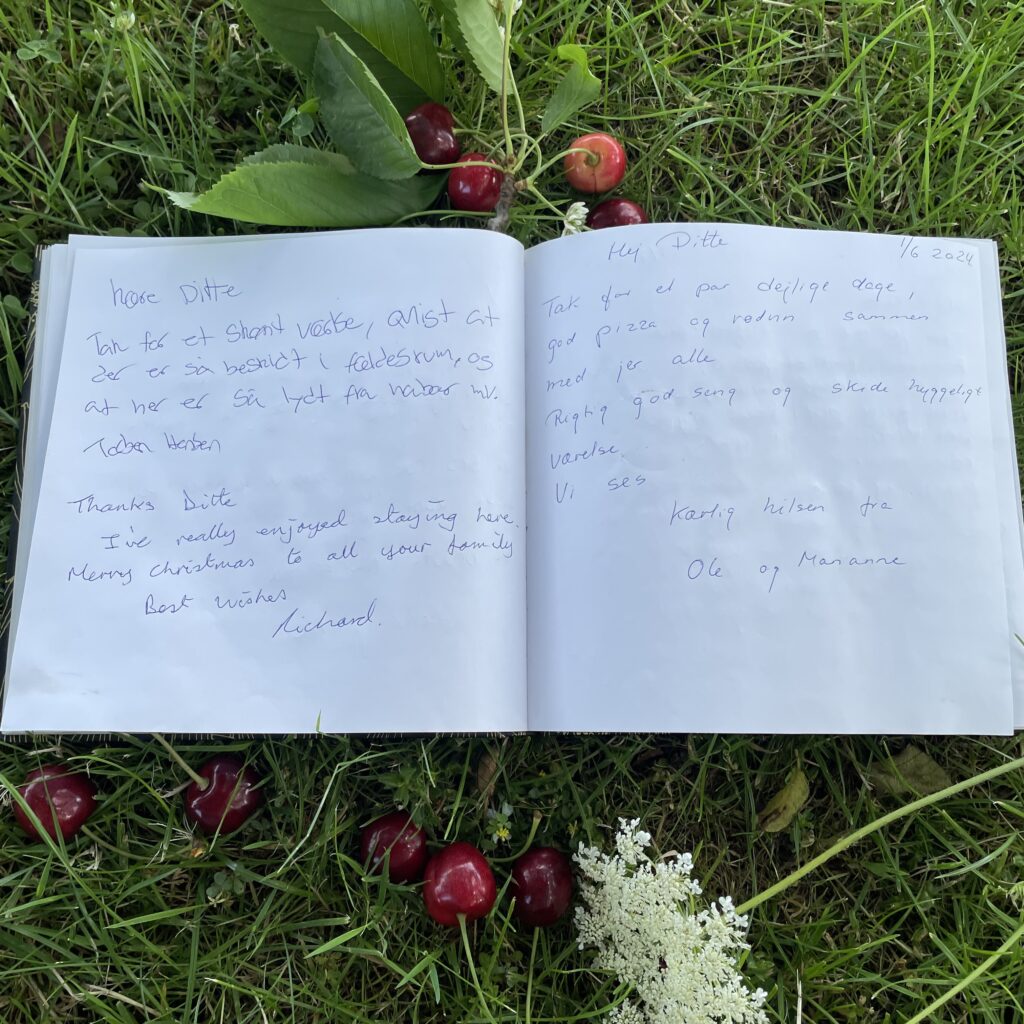 Kære Ditte
Tak for et skønt værelse, at
der er så beskidt i fællesrum, og
at her er så lydt fra naboer mv.
Torben
Thanks Ditte
I've really enjoyed staying here.
Merry Christmas to all your family
Best wishes
Richard.
Hej Ditte
1/6 2024
Tak for et par dejlige dage,
god pizza og rødvin sammen
med jer alle
Rigtig god seng og skide hyggeligt
værelse.
Vi ses
Kærlig hilsen fra
Ole og Marianne